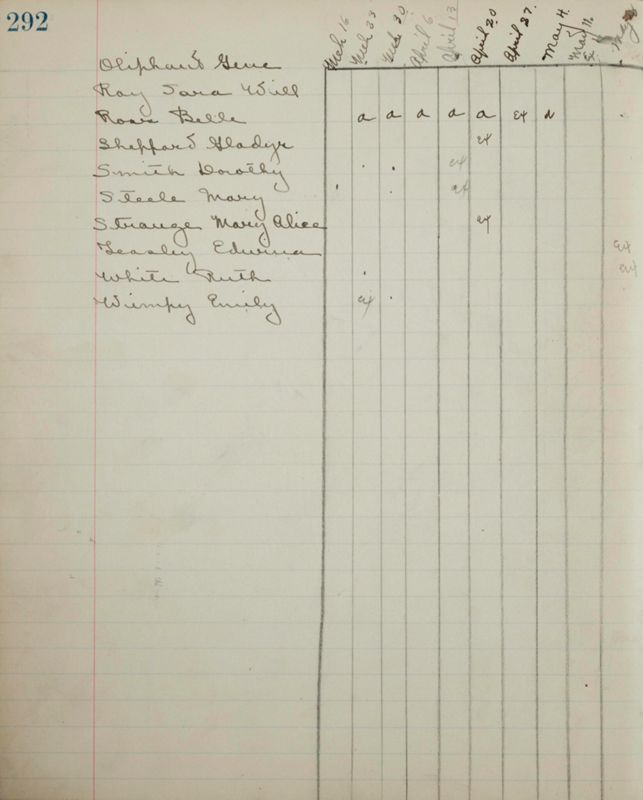 292
Mch 16 Mch 23 Mch 30 April 6 April 13 April 20 April 27 May 4 May 11 May
Oliphant Gene
Ray Sara Will
Ross Belle a a a a a ex a
Sheppard Gladys ex
Smith Dorothy ex
Steele Mary ex
Strange Mary Alice ex
Teasley Edwina ex
White Ruth ex
Wimpy Emily ex